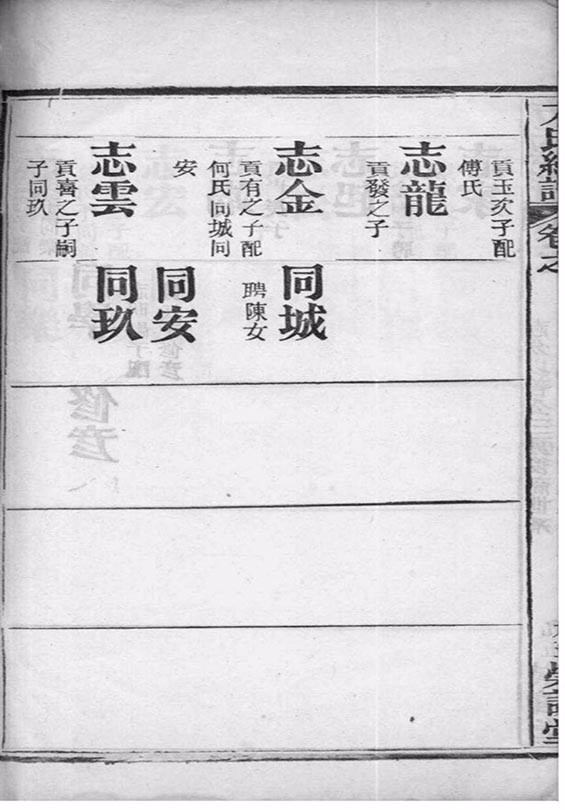 氏續譜
卷之
貢玉次子配
傅氏
志龍
貢發之子
志金
貢有之子配
何氏同城同
安
志雲
貢之子嗣
子同玖
同城
聘陳女
同安
同玖